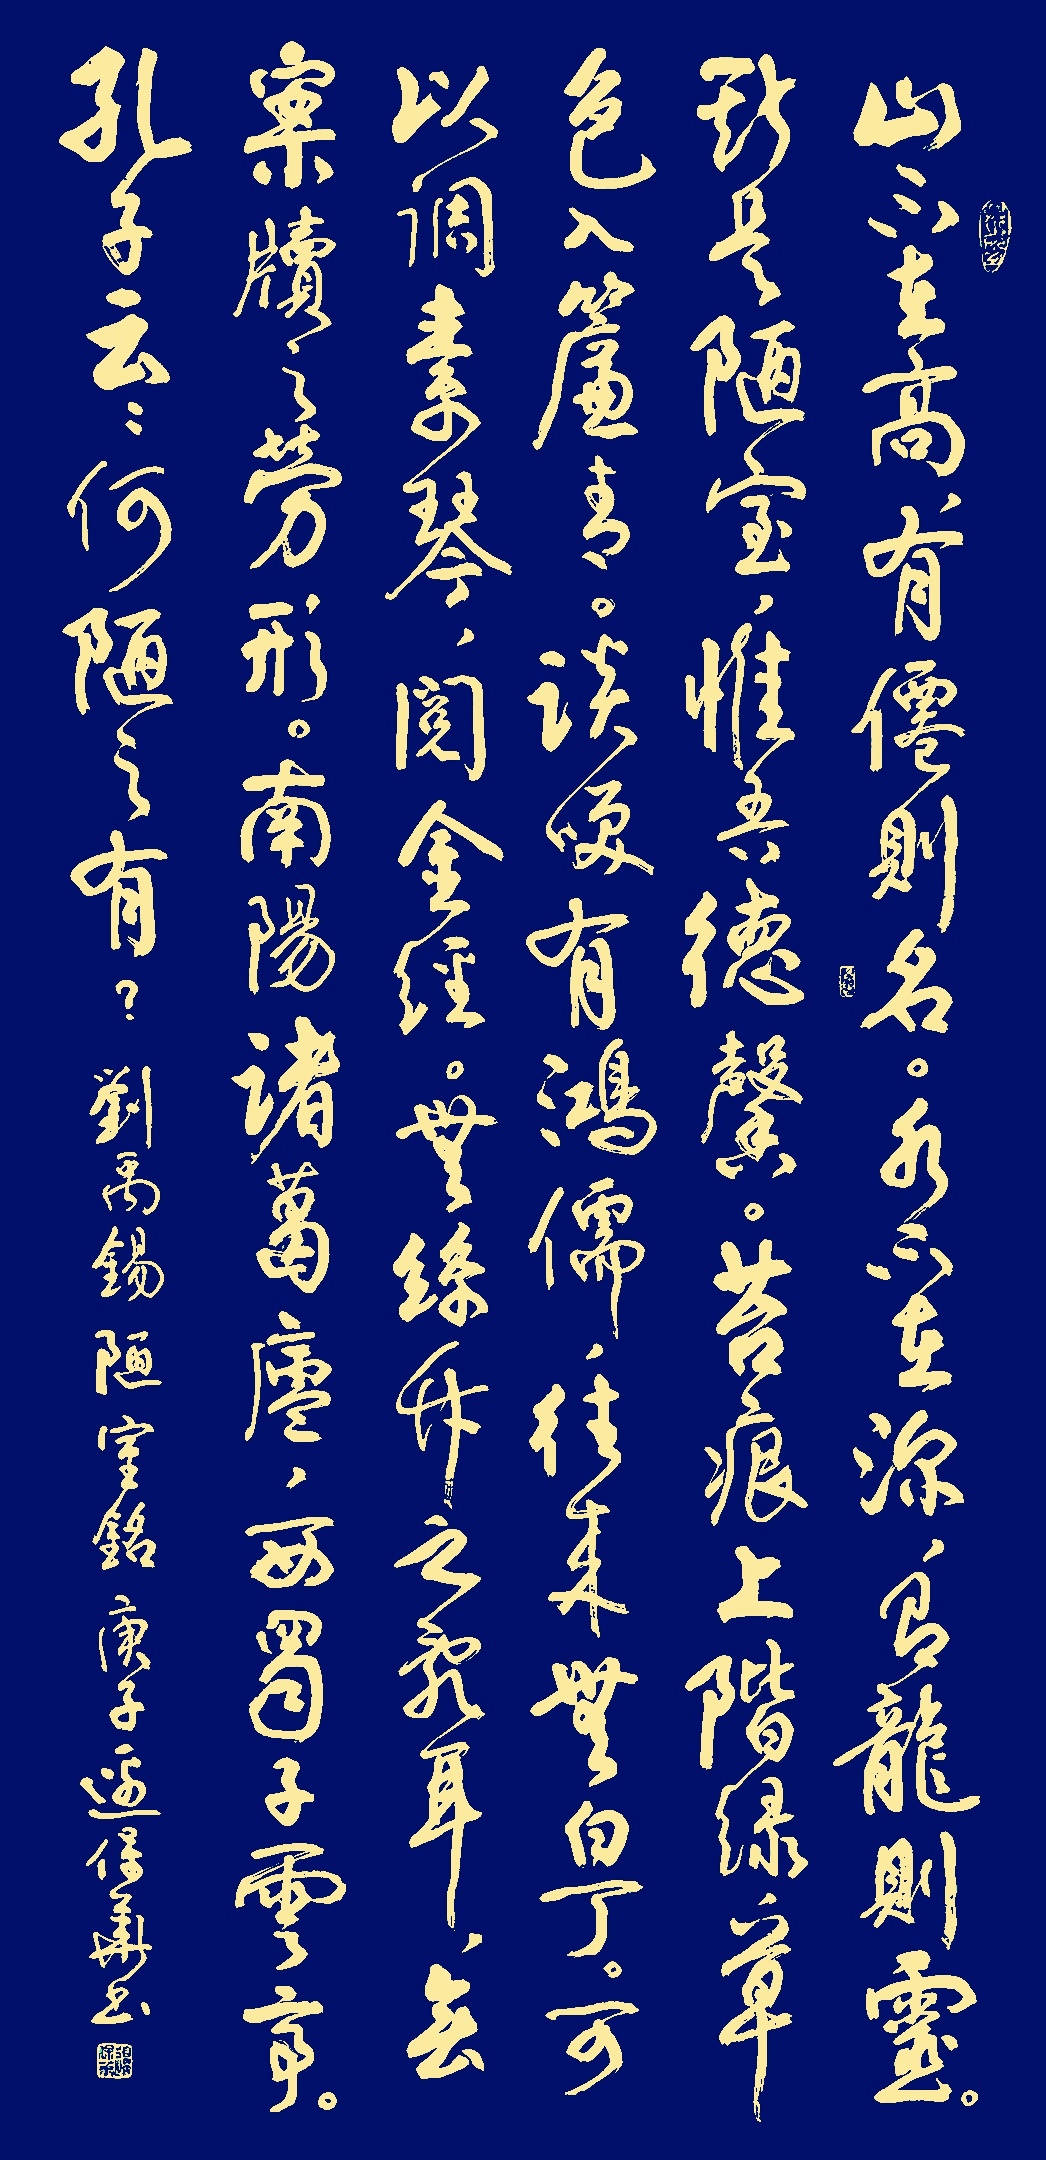 山不在高、有僊則名。水不在深、有龍則靈。
斯是陋室、惟吾德馨。苔痕上階緑、草
色入簾青。談咲有鴻儒、往来無白丁。可
以調素琴、閲金經。無絲竹之亂耳、無
案牘之勞形。南陽諸葛廬、西蜀子雲亭。
孔子云：何陋之有？劉禹錫陋室銘 庚子 保華书